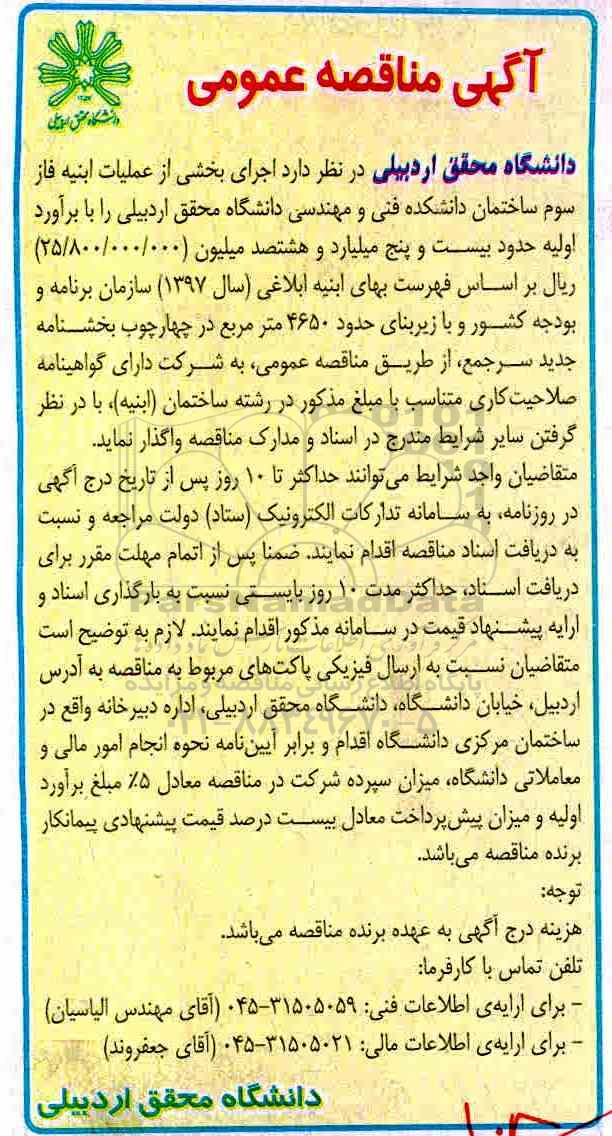 دانشگاه محقق اردبیلی
آگهی مناقصه عمومی
دانشگاه محقق اردبیلی در نظر دارد اجرای بخشی از عملیات ابنیه فاز
سوم ساختمان دانشکده فنی و مهندسی دانشگاه محقق اردبیلی را با برآورد
اولیه حدود بیست و پنج میلیارد و هشتصد میلیون (۲۵/۸۰۰/۰۰۰/۰۰۰)
ریال بر اساس فهرست بهای ابنیه ابلاغی (سال ۱۳۹۷) سازمان برنامه و
بودجه کشور و با زیربنای حدود ۴۶۵۰ متر مربع در چهارچوب بخشنامه
جدید سرجمع، از طریق مناقصه عمومی، به شرکت دارای گواهینامه
صلاحیت‌کاری متناسب با مبلغ مذکور در رشته ساختمان (ابنیه)، با در نظر
گرفتن سایر شرایط مندرج در اسناد و مدارک مناقصه واگذار نماید.
متقاضیان واجد شرایط می‌توانند حداکثر تا ۱۰ روز پس از تاریخ درج آگهی
در روزنامه، به سامانه تدارکات الکترونیک (ستاد) دولت مراجعه و نسبت
به دریافت اسناد مناقصه اقدام نمایند. ضمنا پس از اتمام مهلت مقرر برای
دریافت اسناد، حداکثر مدت ۱۰ روز بایستی نسبت به بارگذاری اسناد و
ارایه پیشنهاد قیمت در سامانه مذکور اقدام نمایند. لازم به توضیح است
متقاضیان نسبت به ارسال فیزیکی پاکت‌های مربوط به مناقصه به آدرس
اردبیل، خیابان دانشگاه، دانشگاه محقق اردبیلی، اداره دبیرخانه واقع در
ساختمان مرکزی دانشگاه اقدام و برابر آیین‌نامه نحوه انجام امور مالی و
معاملاتی دانشگاه، میزان سپرده شرکت در مناقصه معادل ۵٪ مبلغ برآورد
اولیه و میزان پیش‌پرداخت معادل بیست درصد قیمت پیشنهادی پیمانکار
برنده مناقصه می‌باشد.
توجه:
هزینه درج آگهی به عهده برنده مناقصه می‌باشد.
تلفن تماس با کارفرما:
- برای ارایه‌ی اطلاعات فنی: ۳۱۵۰۵۰۵۹-۰۴۵ (آقای مهندس الیاسیان)
- برای ارایه‌ی اطلاعات مالی: ۳۱۵۰۵۰۲۱-۰۴۵ (آقای جعفروند)
دانشگاه محقق اردبیلی